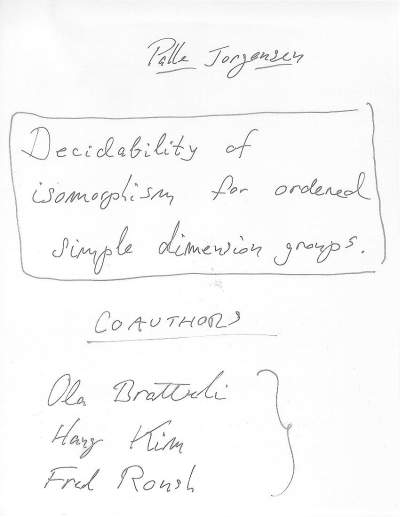 Palle Jorgensen
Decidability of
isomorphism for ordered
simple dimension groups.
COAUTHORS
Ola Bratteli
Hang Kim
Fred Roush